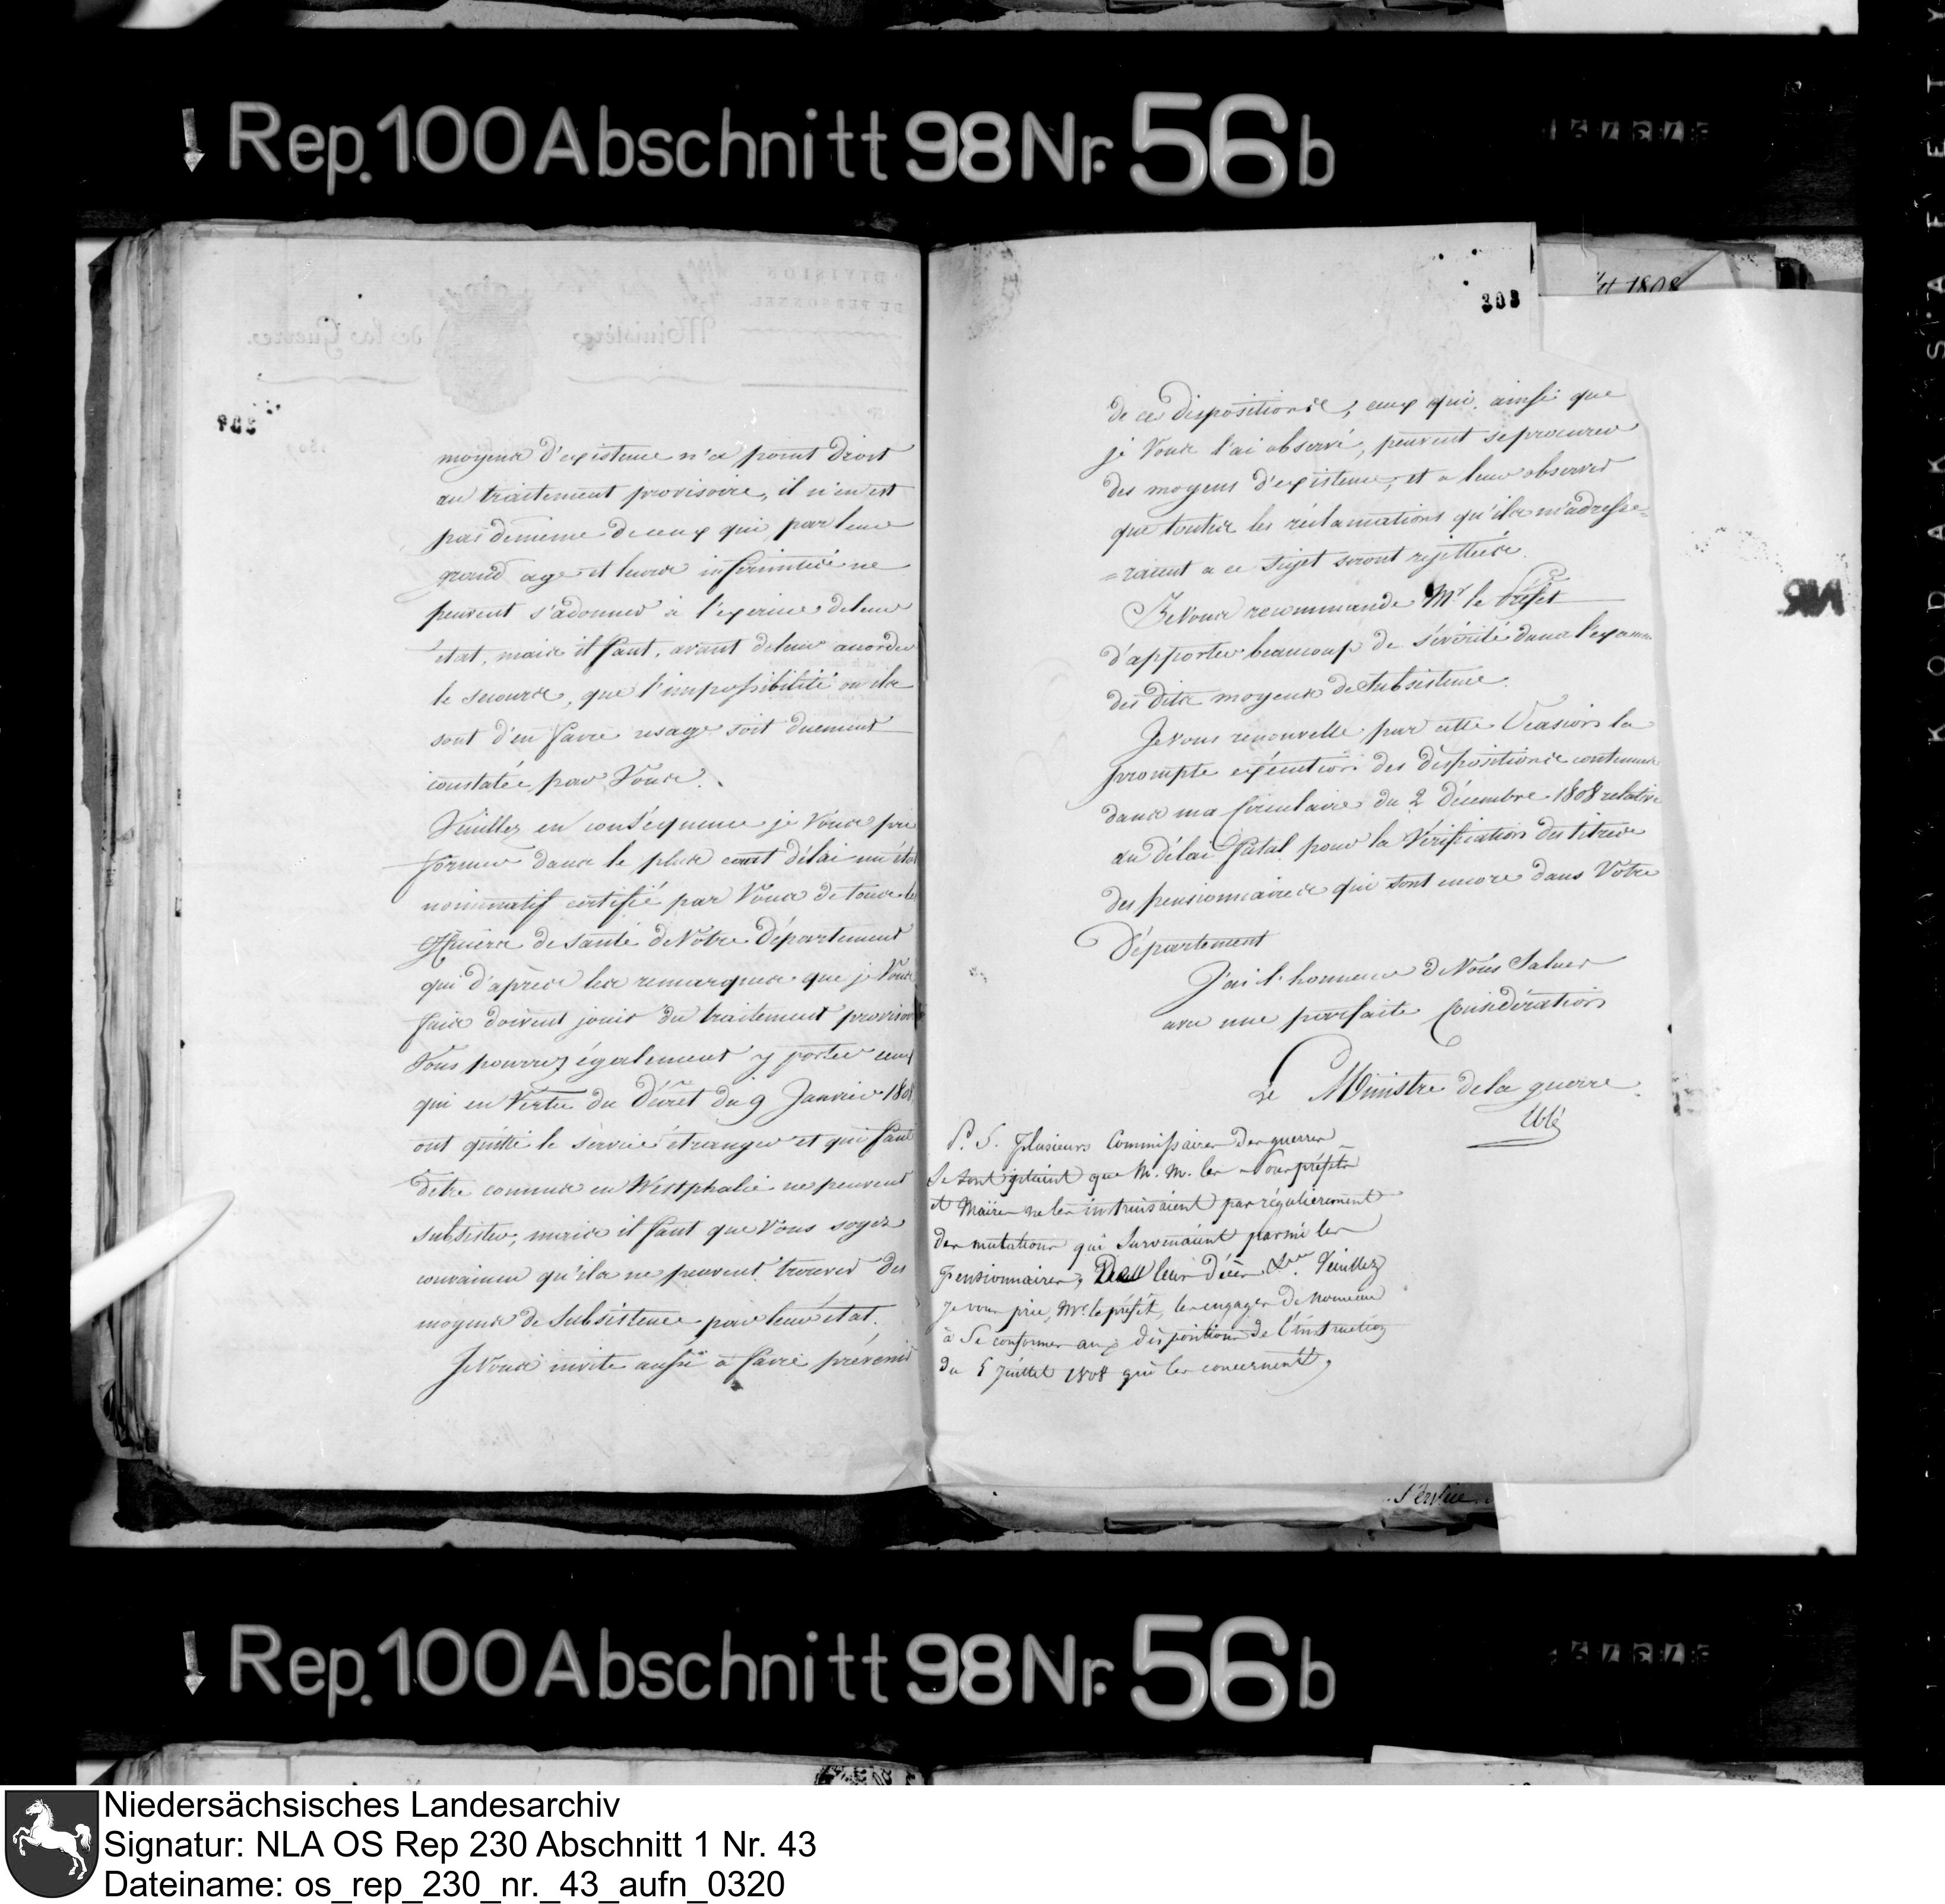 Rep. 100 Abschnitt 98 Nr. 56b
moyens d'existence n'a point droit
au traitement provisoire, il n'en est
pas demême de ceux qui, par leur
grand age et leurs infirmités ne
peuvent s'adonner à l'exercice deleur
état, mais il faut, avant deleur accorder
le secours, que l'impossibilité ou ils
sont d'en faire usage soit duement
constatée par Vous.
Veuillez en conséquence je Vous prie
former dans le plus court délai un état
nominatif certifié par Vous de tous les
officiers de santé deVotre Département
qui d'après les remarques que je Vous
fais doivent jouir du traitement provisoire
Vous pourrez également y porter ceux
qui en Vertu du Décret du 9 Janvier 1808
ont quitté le service étranger et qui faute
d'etre connus en Westphalie ne peuvent
subsister, mais il faut que Vous soyez
convaincu qu'ils ne peuvent trouver des
moyens de Subsistence par leur état.
JeVous invite aussi à faire prévenir
303
de ces dispositions, ceux qui, ainsi que
je Vous l'ai observé, peuvent se procurer
des moyens d'existence, et a leur observer
que toutes les réclamations qu'ils m'adresse=
=raient a ce sujet seront rejettées.
JeVous recommande Mr le Préfet
d'apporter beaucoup de sévérité dans l'examen
des dits moyens de Subsistence.
Jevous renouvelle par cette Occasion la
prompte exécution des dispositions contenues
dans ma Circulaire du 2 Décembre 1808 relative
au délai fatal pour la Vérification des titres
des pensionnaires qui sont encore dans Votre
Département
J'ai l'honneur deVous Saluer
avec une parfaite Considération
Le Ministre de la guerre
P. S. Plusieurs Commissaires des guerres
se sont plaint que M. M. les Sous préfets
et Maires ne les instruisaient pas régulierement
des mutations qui Survenaient parmi les
pensionnaires, leur décès &ra. Veuillez
je vous prie, Mr. le préfet, les engager de nouveau
à Se conformer aux dispositions de l'instruction
du 5 Juillet 1808 qui les concernent.
't 1808
Service
Rep. 100 Abschnitt 98 Nr. 56b
KODAK SAFETY
Niedersächsisches Landesarchiv
Signatur: NLA OS Rep 230 Abschnitt 1 Nr. 43
Dateiname: os_rep_230_nr._43_aufn_0320